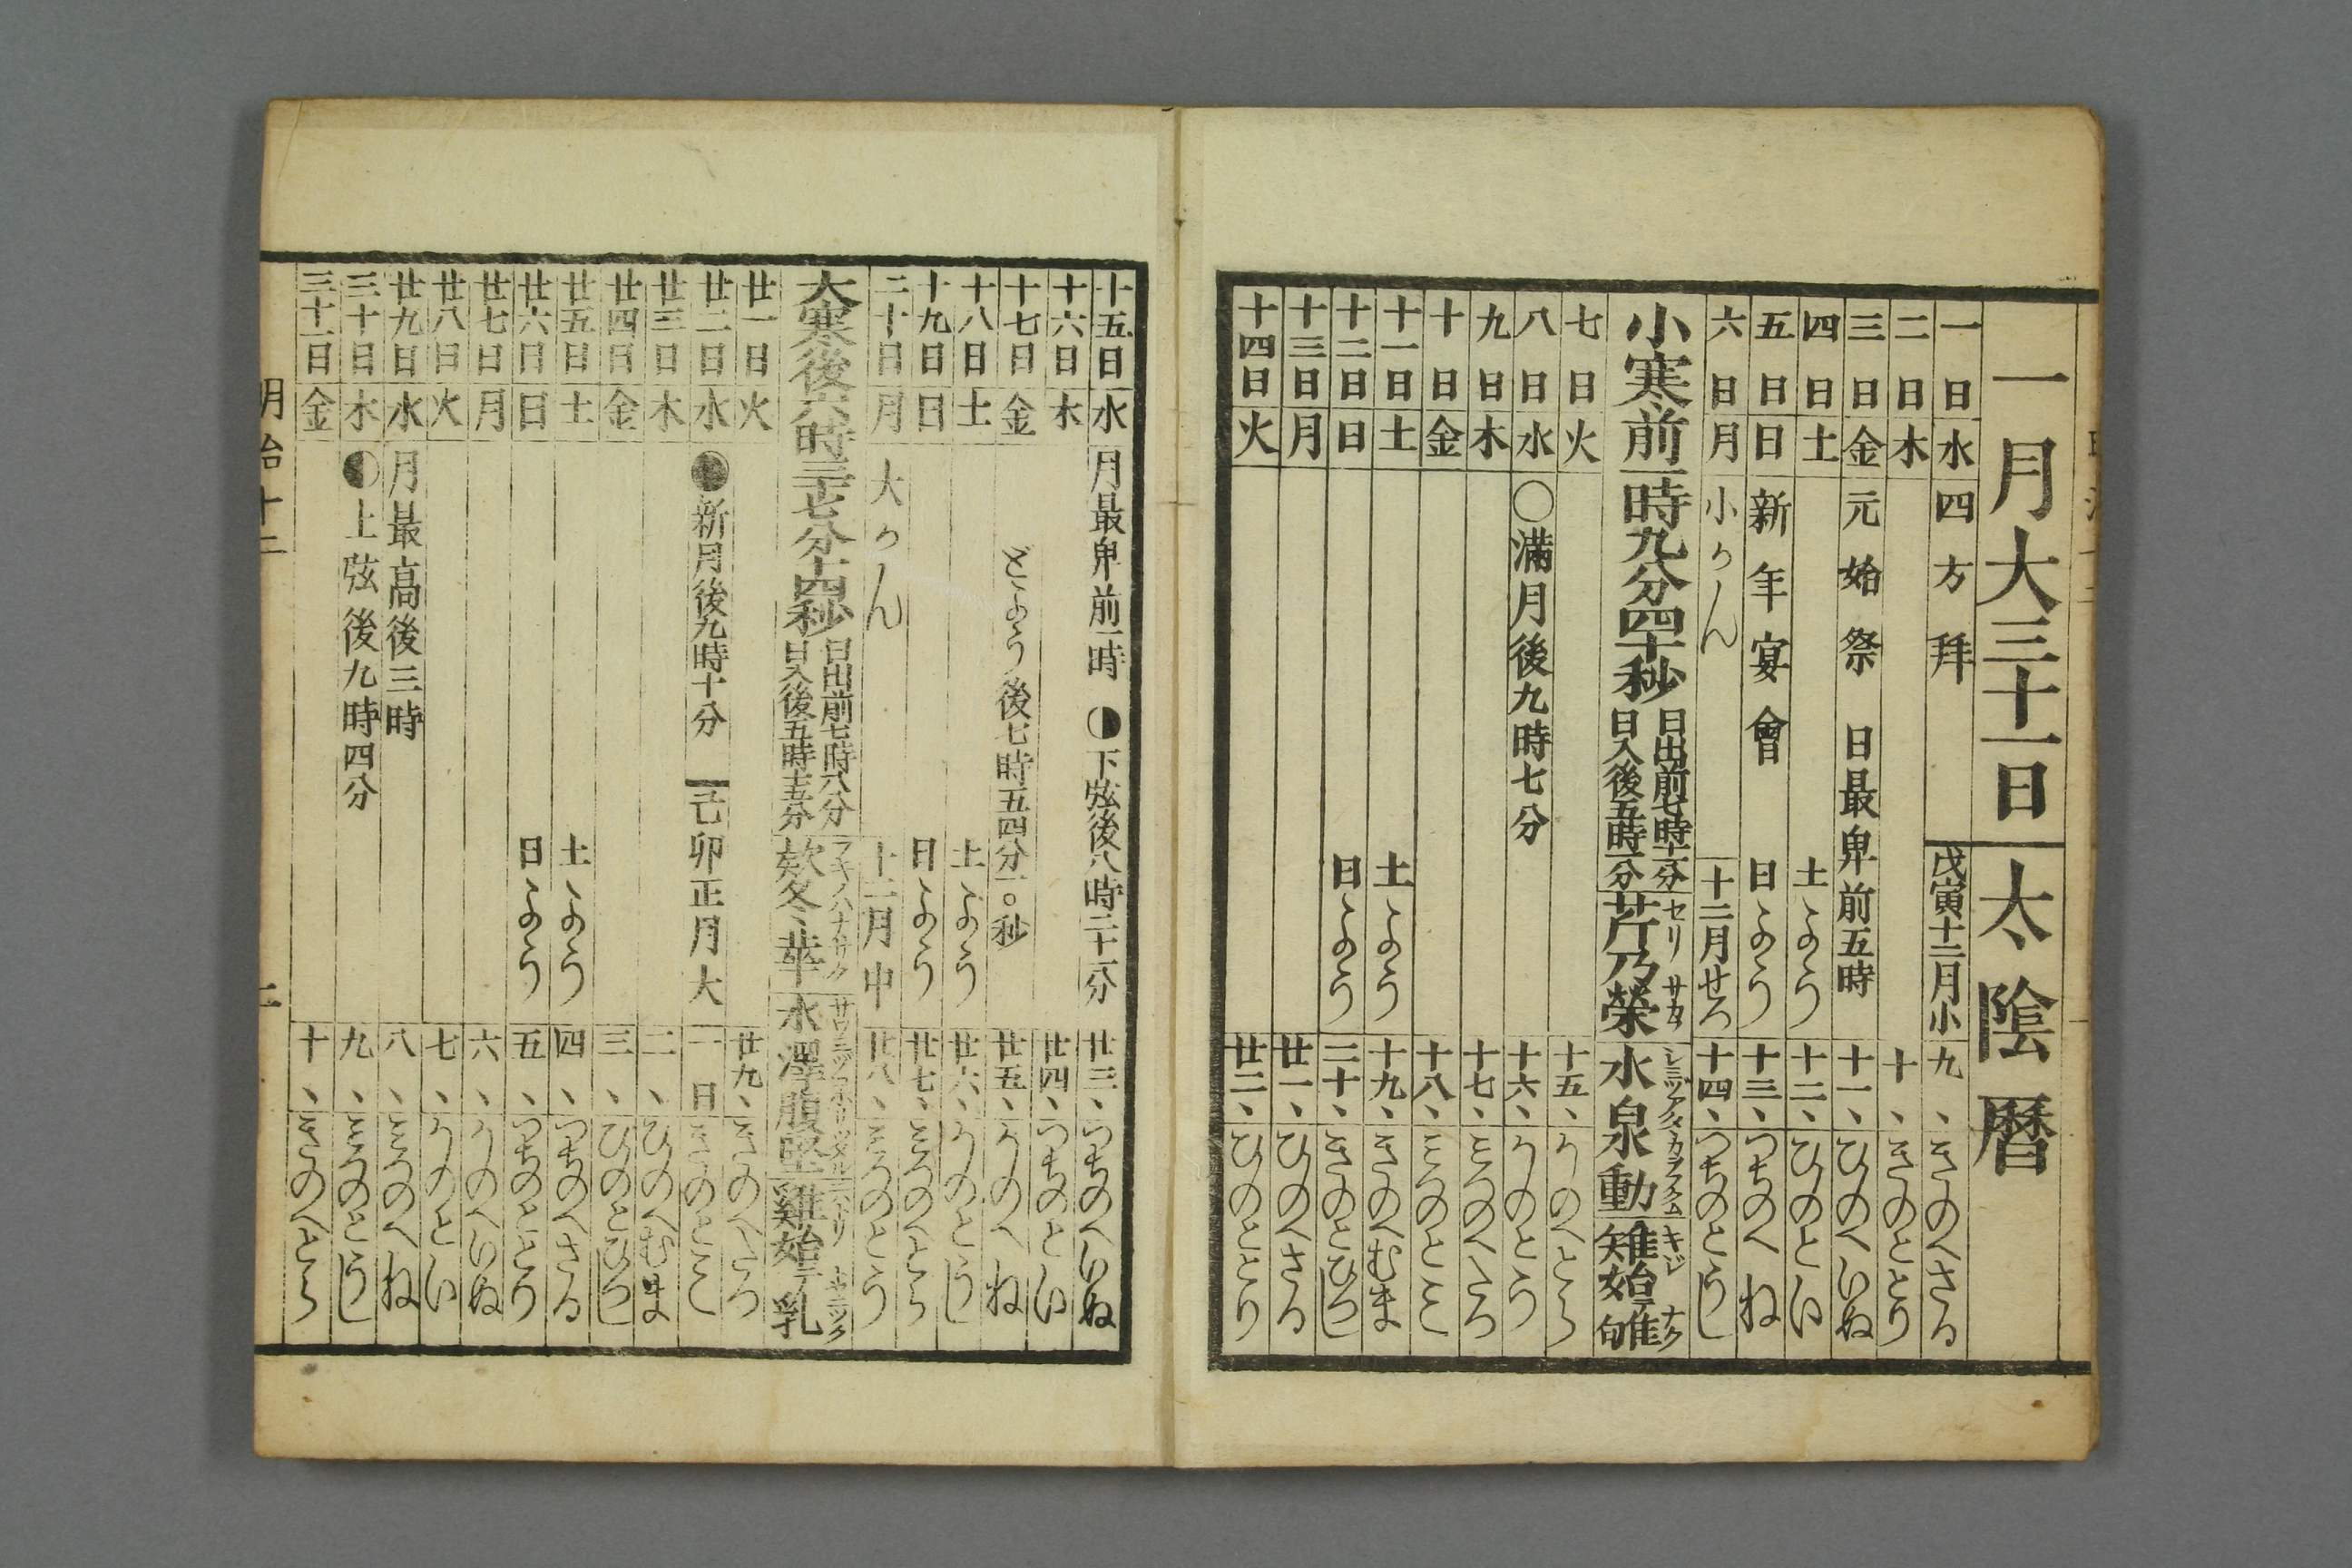 一月大三十一日 太陰暦
一日 水 四方拜 戊寅十二月小 九、 きのへさる
二日 木 十、 きのととり
三日 金 元始祭 日最卑前五時 十一、 ひのへいぬ
四日 土 土よう 十二、 ひのとい
五日 日 新年宴會 日よう 十三、 つちのへね
六日 月 小かん 十二月せつ 十四、 つちのとうし
小寒前一時九分四十秒 日出前七時十一分 日入後五時一分 芹乃榮 セリ サカフ 水泉動 シミヅアタヽカヲフクム 雉始テ雊 キジ ナク
七日 火 十五、 かのへとら
八日 水 ○滿月後九時七分 十六、 かのとう
九日 木 十七、 みつのへたつ
十日 金 十八、 みつのとみ
十一日 土 土よう 十九、 きのへむま
十二日 日 日よう 二十、 きのとひつし
十三日 月 廿一、 ひのへさる
十四日 火 廿二、 ひのととり
十五日 水 月最卑前一時 ◑下弦後八時二十一分 廿三、 つちのへいぬ
十六日 木 廿四、 つちのとい
十七日 金 どよう 後七時五四分一〇秒 廿五、 かのへね
十八日 土 土よう 廿六、 かのとうし
十九日 日 日よう 廿七、 みつのへとら
二十日 月 大かん 十二月中 廿八、 みつのとう
大寒後六時三十七分十四秒 日出前七時八分 日入後五時十五分 欵冬華 フキノハナサク 水澤腹堅 サワミヅコホリツメル 雞始テ乳 ニハトリ トヤニツク
廿一日 火 廿九、 きのへたつ
廿二日 水 ●新月後九時十分 己卯正月大 一日 きのとみ
廿三日 木 二、 ひのへむま
廿四日 金 三、 ひのとひつし
廿五日 土 土よう 四、 つちのへさる
廿六日 日 日よう 五、 つちのととり
廿七日 月 六、 かのへいぬ
廿八日 火 七、 かのとい
廿九日 水 月最高後三時 八、 みつのへね
三十日 木 ◐上弦後九時四分 九、 みつのとうし
三十一日 金 十、 きのへとら
明治十二 二